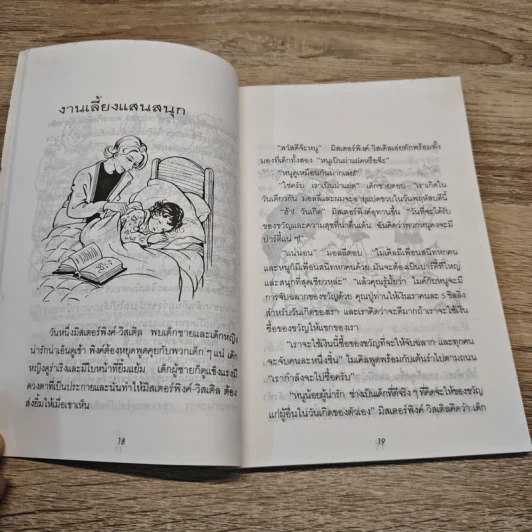 งานเลี้ยงแสนสนุก
วันหนึ่งมิสเตอร์พิงค์-วิสเติล พบเด็กชายและเด็กหญิง
น่ารักน่าเอ็นดูเข้า พิงค์ต้องหยุดพูดคุยกับพวกเด็ก ๆ แน่ เด็ก
หญิงดูร่าเริงและมีใบหน้าที่ยิ้มแย้ม เด็กผู้ชายก็ดูแข็งแรงมี
ดวงตาที่เป็นประกายและนั่นทำให้มิสเตอร์พิงค์-วิสเติล ต้อง
ส่งยิ้มให้เมื่อเขาเห็น
18
"สวัสดีจ้ะหนู" มิสเตอร์พิงค์-วิสเติลเอ่ยทักพร้อมทั้ง
มองที่เด็กทั้งสอง "หนูเป็นฝาแฝดหรือจ๊ะ"
"หนูดูเหมือนกันมากเลย"
"ใช่ครับ เราเป็นฝาแฝด" เด็กชายตอบ "เราเกิดใน
วันเดียวกัน มอลลี่และผมจะอายุแปดขวบในวันพฤหัสบดีนี้
"ฮ้า! วันเกิด" มิสเตอร์พิงค์อุทานขึ้น "วันที่จะได้รับ
ของขวัญและความสุขที่น่าตื่นเต้น ฉันคิดว่าพวกหนูคงจะมี
ปาร์ตี้แน่ ๆ"
"แน่นอน" มอลลี่ตอบ "ไมเคิลมีเพื่อนสนิทหกคน
และหนูก็มีเพื่อนสนิทหกคนด้วย มันจะต้องเป็นปาร์ตี้ที่ใหญ่
และสนุกที่สุดเชียวหล่ะ" "แล้วคุณรู้มั้ยว่า ไมเคิลกับหนูจะมี
การจับฉลากของขวัญด้วย คุณปู่ท่านให้เงินเราคนละ 5 ชิลลิ่ง
สำหรับวันเกิดของเรา และเราคิดว่าจะดีมากถ้าเราจะใช้เงิน
ซื้อของขวัญให้แขกของเรา
"เราจะใช้เงินนี้ซื้อของขวัญที่จะใช้ในการจับฉลาก และทุกคน
จะจับคนละหนึ่งชิ้น" ไมเคิลพูดพร้อมกับเต้นรำไปตามถนน
"เรากำลังจะไปซื้อครับ"
"หนูน้อยผู้น่ารัก ช่างเป็นเด็กที่ดีจริง ๆ ที่คิดจะให้ของขวัญ
แก่ผู้อื่นในวันเกิดของตัวเอง" มิสเตอร์พิงค์ วิสเติลคิดว่า เด็ก
19